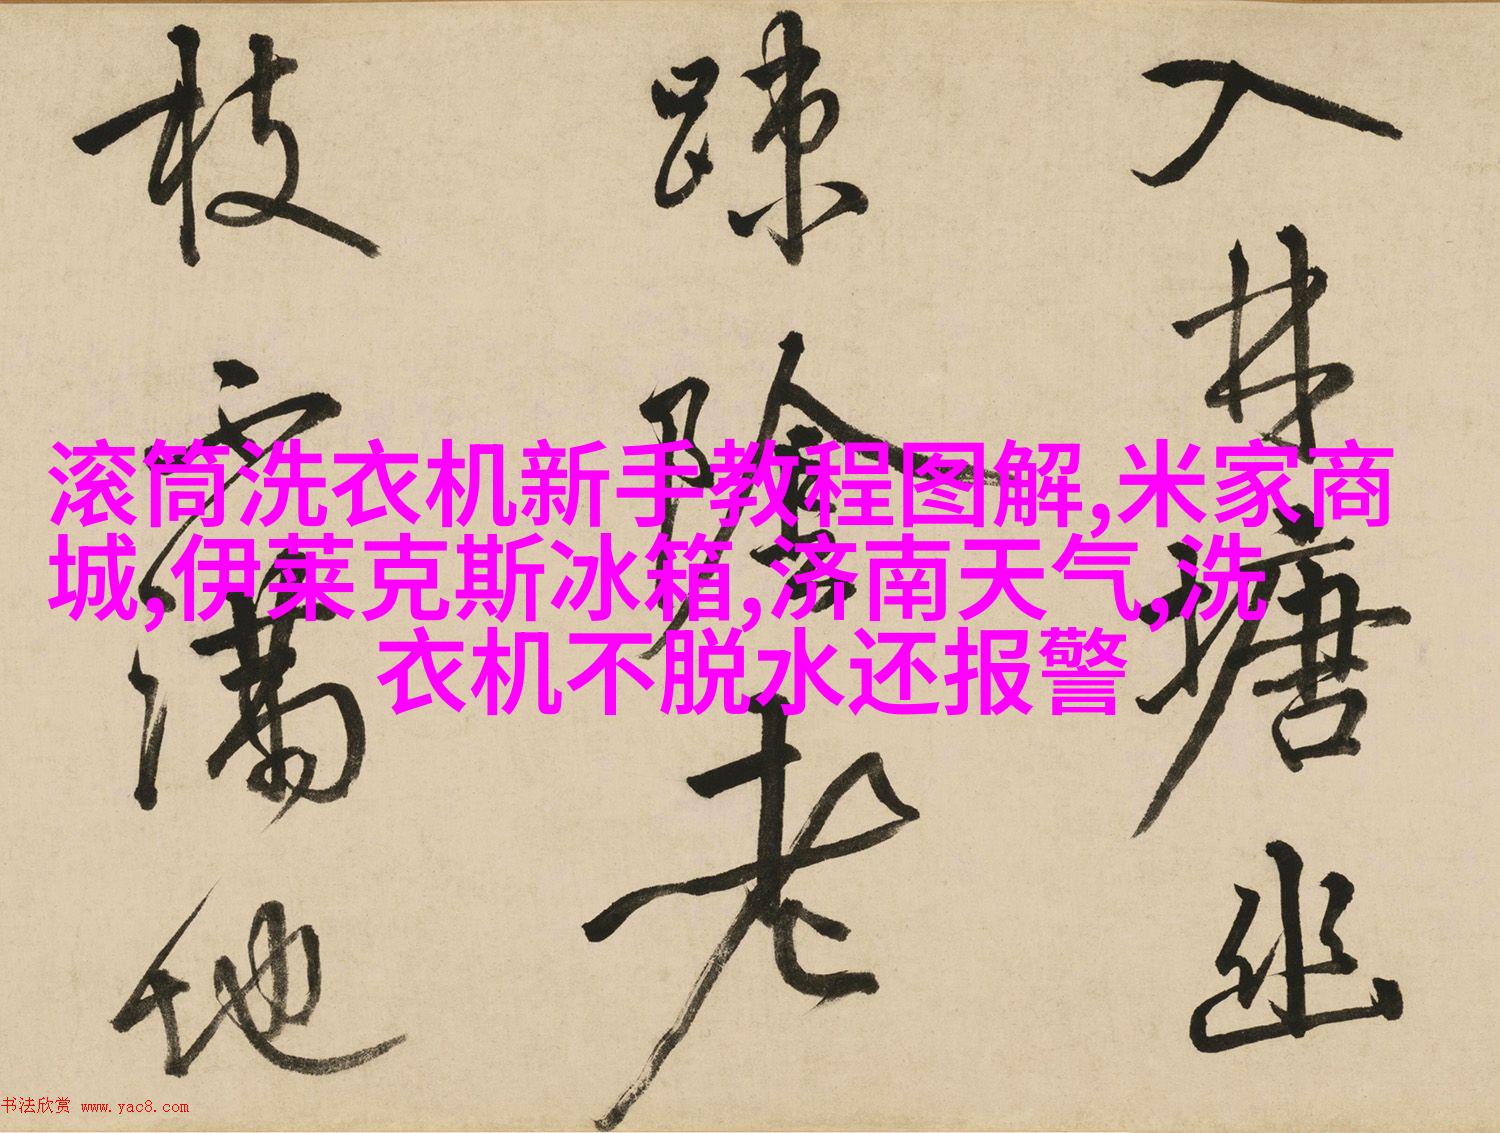 入林塘幽
踈陰老
枝滿地
滚筒洗衣机新手教程图解,米家商
城,伊莱克斯冰箱,济南天气,洗
衣机不脱水还报警
书法欣赏 www.yac8.com